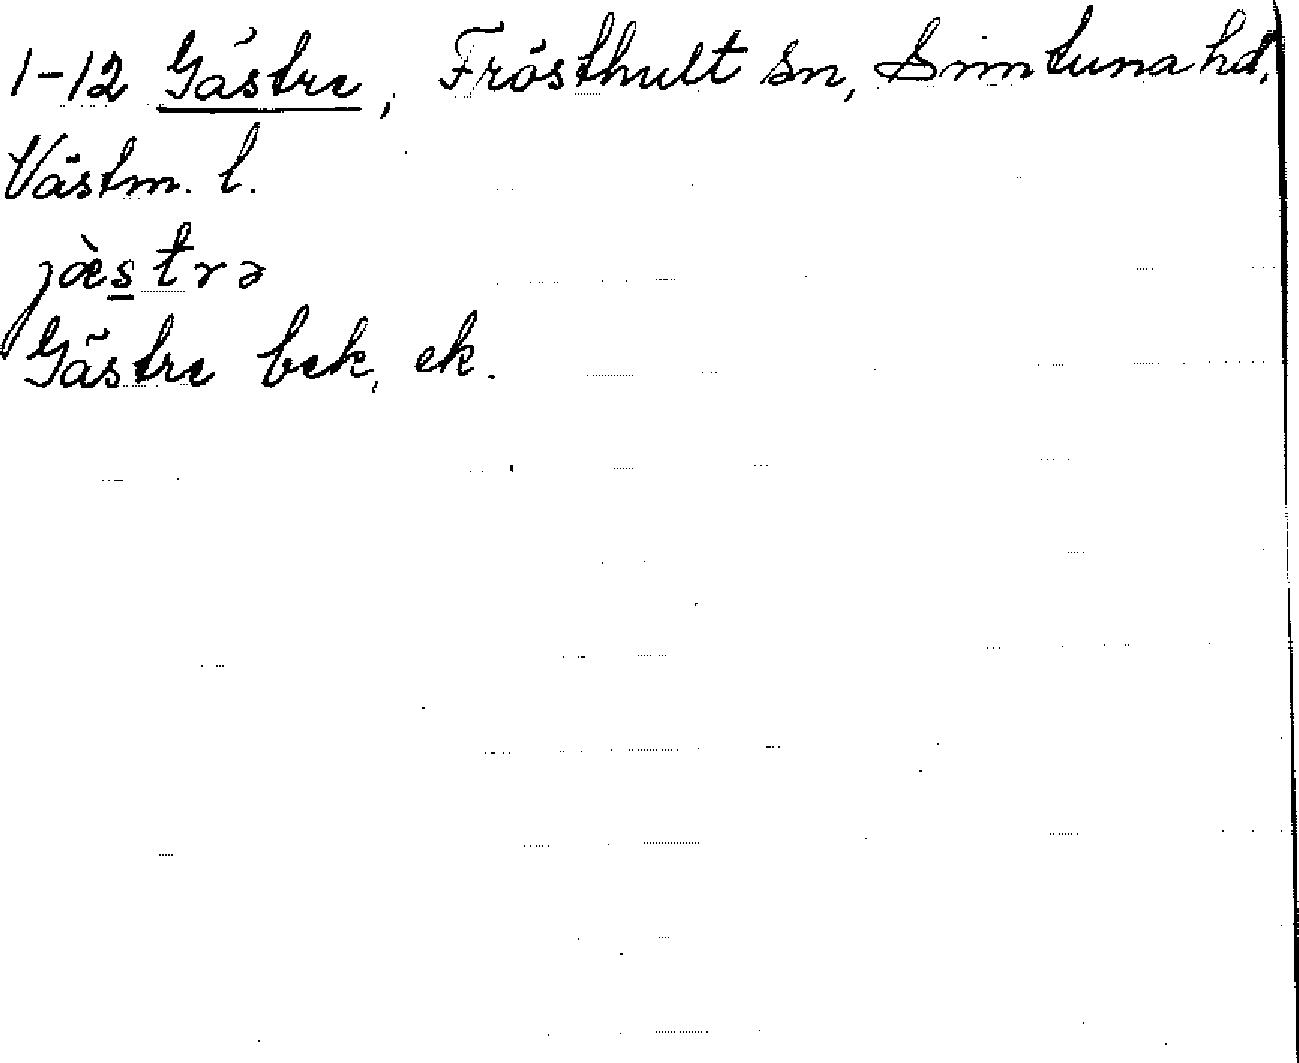 1-12 Gästre, Frösthult sn, Simtuna hd,
Västm. l.
jæ̀s̲trə
Gästre bek, ek.